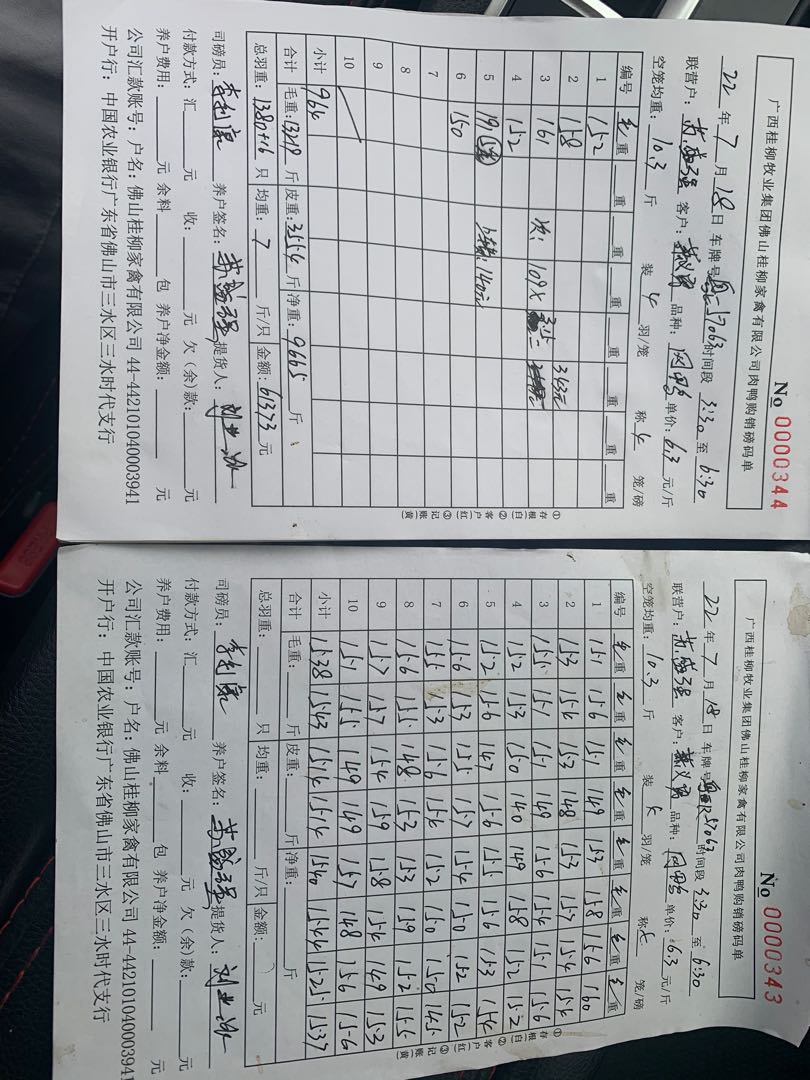 No 0000344
广西桂柳牧业集团佛山桂柳家禽有限公司肉鸭购销磅码单
22 年 7 月 18 日 车牌号 57063 时间段 3:30 至 6:30
联营户: 苏盛强 客户: 品种: 单价: 6.3 元/斤
空笼均重: 10.3 斤 装 4 羽/笼 称 4 笼/磅
编号 毛重 重 重 重 重 重 重 重
1 152
2 158 343元
3 161 次: 109X 3.15=
4 152
5 191 140元
6 150
7
8
9
10
小计 964
合计 毛重: 13219 斤 皮重: 3554 斤 净重: 9665 斤
总羽重: 1380+16 只 均重: 7 斤/只 金额: 61373 元
司磅员: 养户签名: 苏盛强 提货人:
付款方式: 汇 元 收: 元 欠(余)款: 元
养户费用: 元 余料 包 养户净金额: 元
公司汇款账号: 户名: 佛山桂柳家禽有限公司 44-442101040003941
开户行: 中国农业银行广东省佛山市三水区三水时代支行
①存根(白) ②客户(红) ③记账(黄)
No 0000343
广西桂柳牧业集团佛山桂柳家禽有限公司肉鸭购销磅码单
22 年 7 月 18 日 车牌号 57063 时间段 3:30 至 6:30
联营户: 苏盛强 客户: 品种: 单价: 6.3 元/斤
空笼均重: 10.3 斤 装 羽/笼 称 笼/磅
编号 毛重 毛重 毛重 毛重 毛重 毛重 毛重 毛重
1 151 156 151 149 153 158 156 160
2 153 154 153 148 153 157 154 154
3 155 151 151 149 156 154 151 156
4 152 153 150 140 149 158 152 152
5 152 156 147 156 155 156 153 154
6 156 153 155 157 154 150 152 152
7 155 153 156 154 152 150 150 145
8 156 155 148 153 153 159 152 155
9 157 157 154 159 158 154 149 153
10 151 155 149 149 157 148 156 156
小计 1538 1543 1514 1514 1540 1544 1525 1537
合计 毛重: 斤 皮重: 斤 净重: 斤
总羽重: 只 均重: 斤/只 金额: 元
司磅员: 养户签名: 苏盛强 提货人:
付款方式: 汇 元 收: 元 欠(余)款: 元
养户费用: 元 余料 包 养户净金额: 元
公司汇款账号: 户名: 佛山桂柳家禽有限公司 44-442101040003941
开户行: 中国农业银行广东省佛山市三水区三水时代支行
①存根(白) ②客户(红) ③记账(黄)